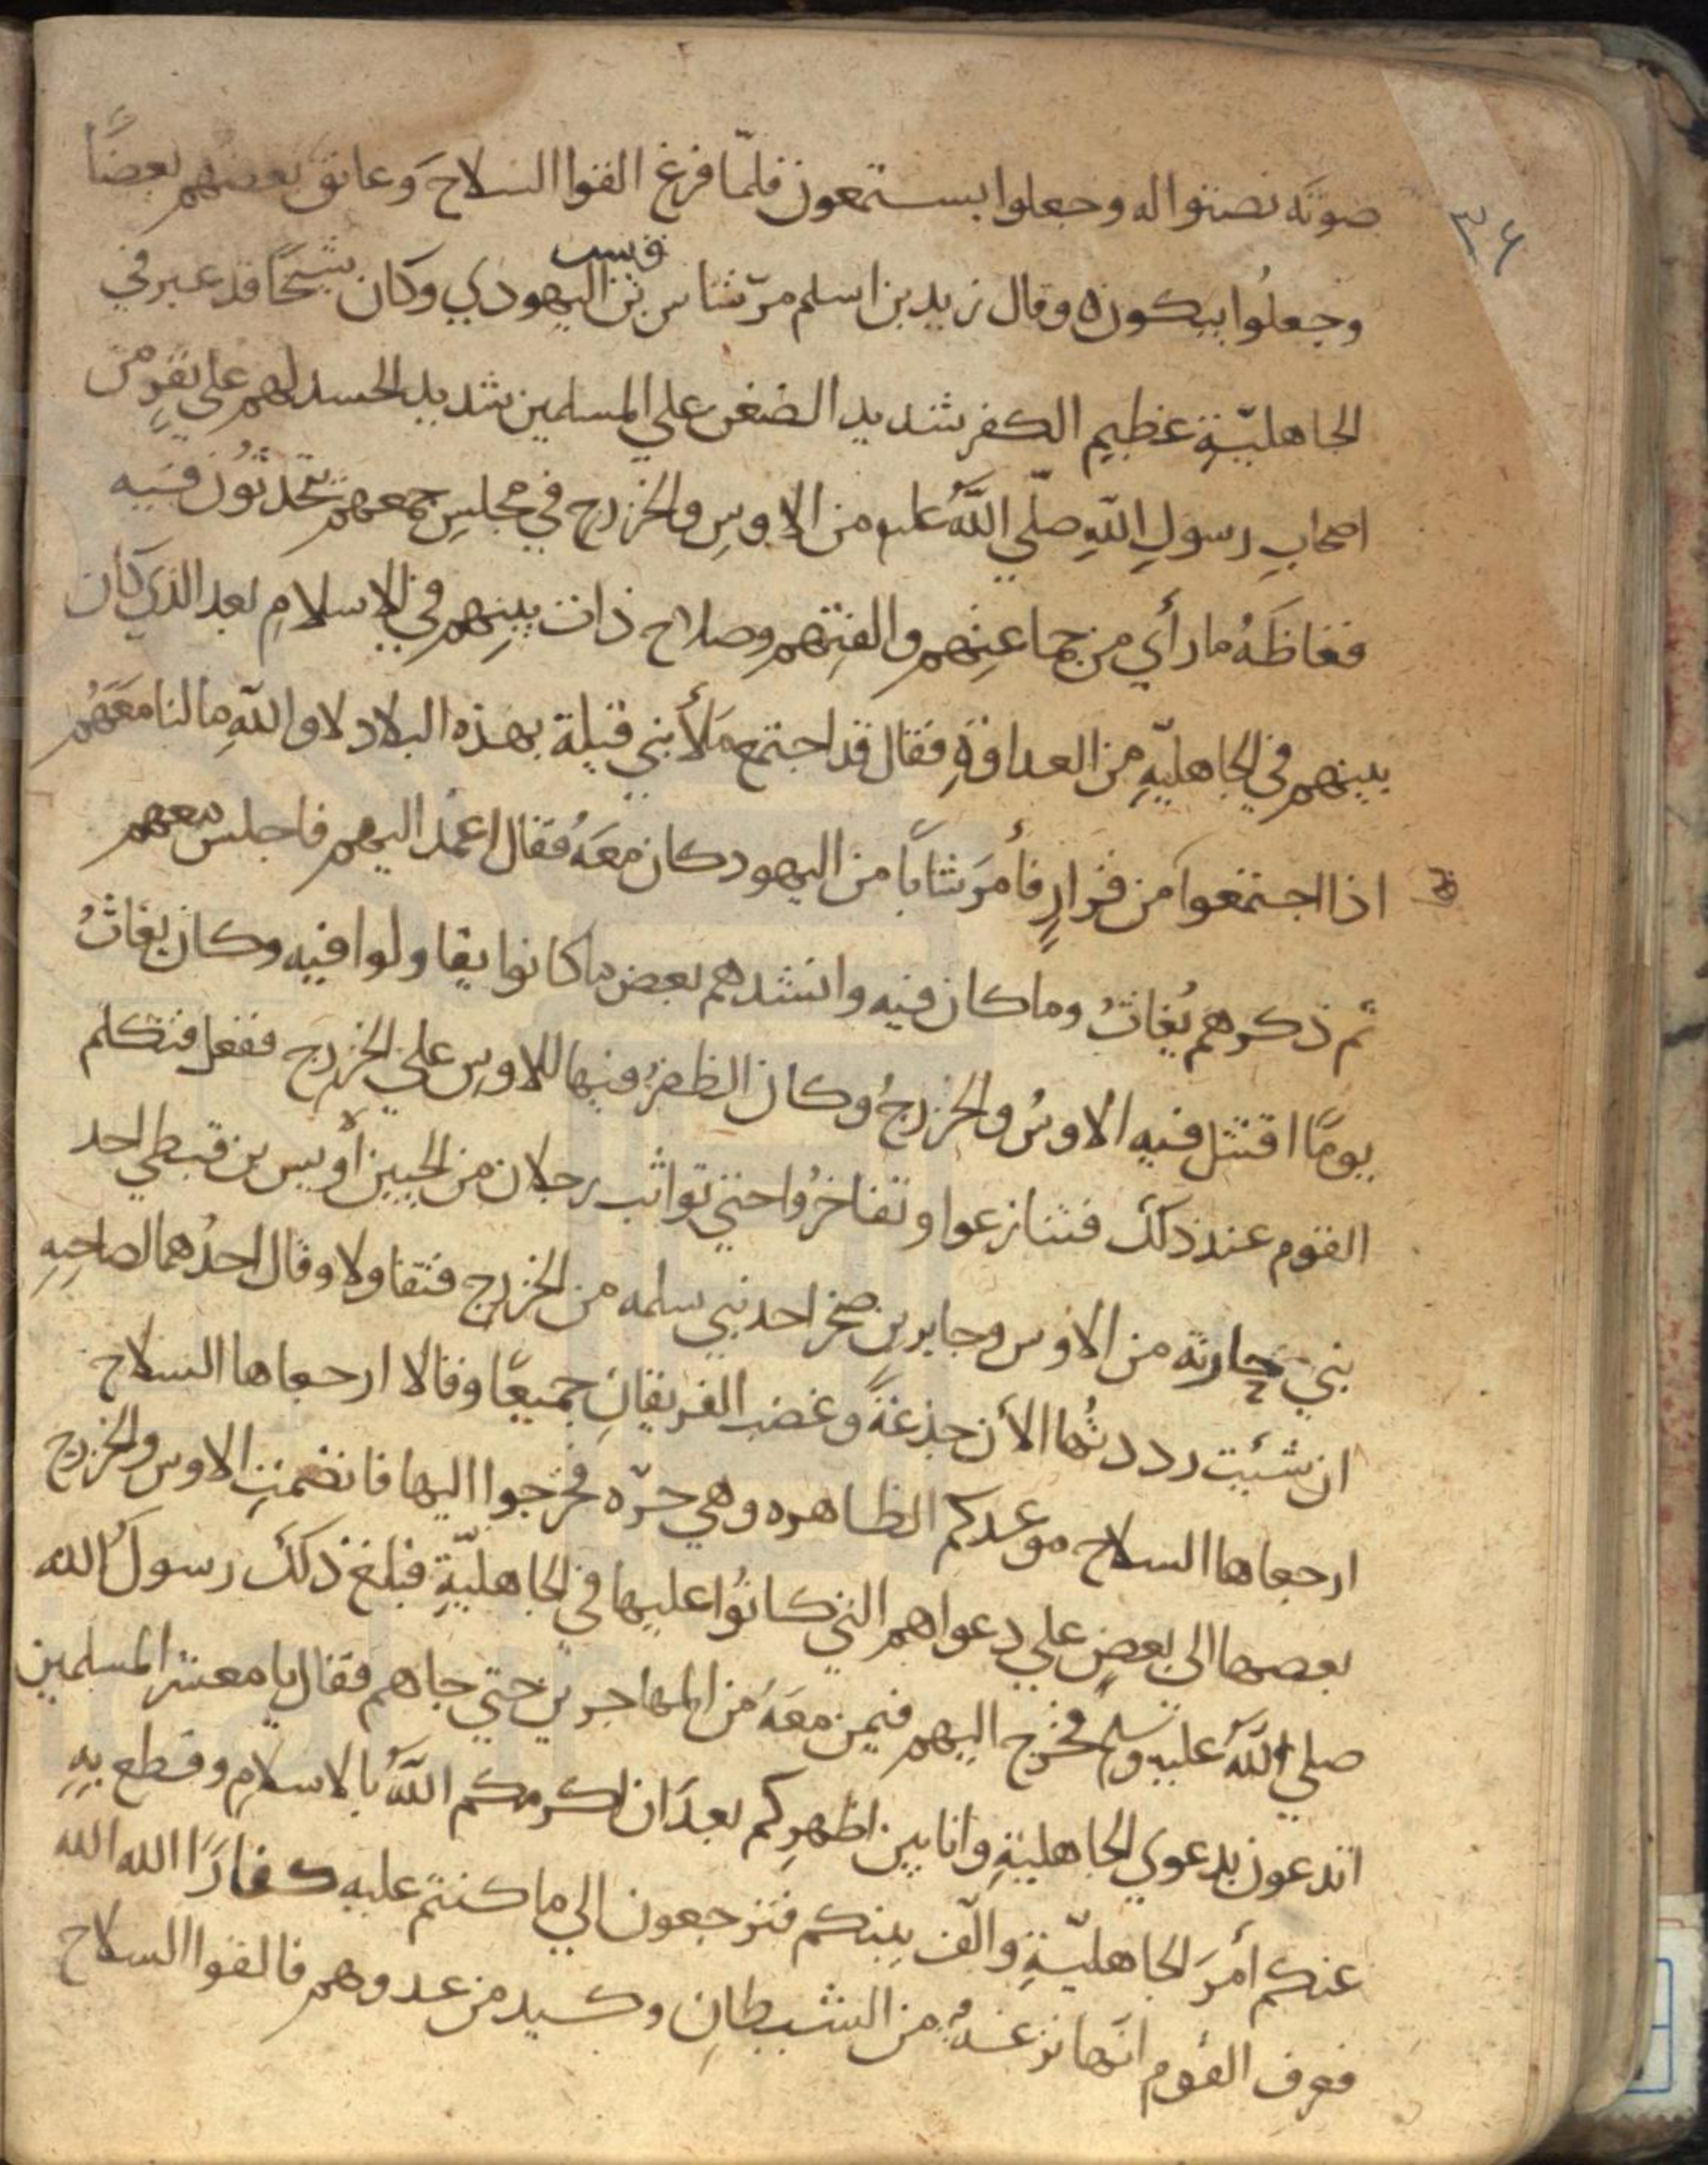 ٣٦
صوته نصتوا له وجعلوا يستمعون فلمّا فرغ القوا السلاحَ وعانق بعضهم بعضًا
وجعلُوا يبكون ٥ وقال زيد بن اسلم مرّ شاس بن قيس اليهودي وكان شيخًا قد عبر في
الجاهليّةِ عظيمِ الكفر شديد الضغن علي المسلمين شديد الحسد لهم علي نفرٍ من
اصحابِ رسولِ اللهِ صلّي اللهُ عليه من الاوسِ والخزرج في مجلسٍ جمعهم يتحدثُون فيه
فغاظَهُ ما رأي من جماعتِهم والفتِهم وصلاح ذات بينِهم في الاسلامِ بعد الذي كان
بينهم في الجاهليّةِ من العداوةِ فقال قد اجتمع مَلأ بني قيلة بهذه البلاد لا واللهِ مالنا معَهُم
اذا اجتمعوا من قرارٍ فأمرَ شابًا من اليهود كان معَهُ فقال اعمد اليهم فاجلس معهم
ثم ذكرهم بُغاثُ وما كان فيه وانشدهم بعض ما كانوا يقاولوا فيه وكان بغاثُ
يومًا اقتتل فيه الاوسُ والخزرجُ وكان الظفرُ فيها للاوس علي الخزرج ففعل فتكلم
القوم عند ذلك فتنازعوا وتفاخرُوا حتي تواثب رجلان من الحيين أويس بن قبطي احد
بني حارثة من الاوس وجابر بن صخر احد بني سلمه من الخزرج فتقاولا وقال احدُهما لصاحبِهِ
ان شئيت رددتُها الأن جذعةً وغضب الفريقانِ جميعًا وقالا ارجعاها السلاح
ارجعاها السلاح موعدكم الظاهره وهي حرّه فخرجوا اليها فانضمتِ الاوس والخزرج
بعضها الى بعضٍ علي دعواهم التي كانُوا عليها في الجاهليّةِ فبلغ ذلك رسولَ الله
صلي اللهُ عليه وسلم فخرج اليهم فيمن معَهُ من المهاجرين حتي جاهم فقال يا معشر المسلمين
اتدعون بدعوي الجاهليةِ وانا بين اظهرِكم بعدَ ان اكرمكم اللهُ بالاسلامِ وقطع بهِ
عنكم أمرَ الجاهليّةِ والّف بينكم فترجعون الي ما كنتم عليه كفارًا الله الله
فعرف القوم انّها نزغةٌ من الشيطانِ وكيد من عدوهم فالقوا السلاح